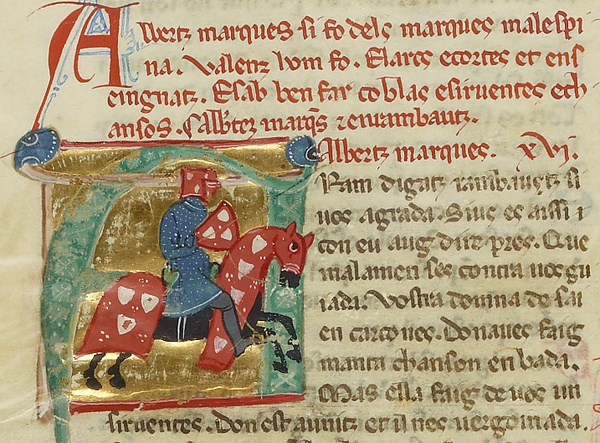 Albertz marques si fo dels marques malespi
na. Valenz hom fo. E larcs e cortes et ens
eingnatz. E sab ben far coblas e siruentes e ch
ansos.
Albertz marques. xvi.
Ram digatz rambautz si
uos agrada. Sius es aissi
con eu aug dire pres. Que
malamen ses contra uos gu
iada. Vostra domna de sai
en
Don aues faig
manta chanson en bada.
Mas ella faig de uos un
siruentes. Don est aunitz et il nes uergoinada.